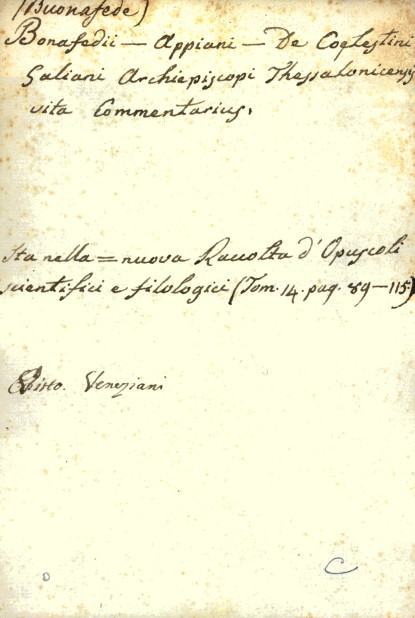 (Buonafede)
Bonafedii — Appiani — De Coelestini
Galiani Archiepiscopi Thessalonicensis
vita Commentarius,
Sta nella = nuova Raccolta d'Opuscoli
scientifici e filologici (Tom. 14. pag. 89—115)
Veneziani
C